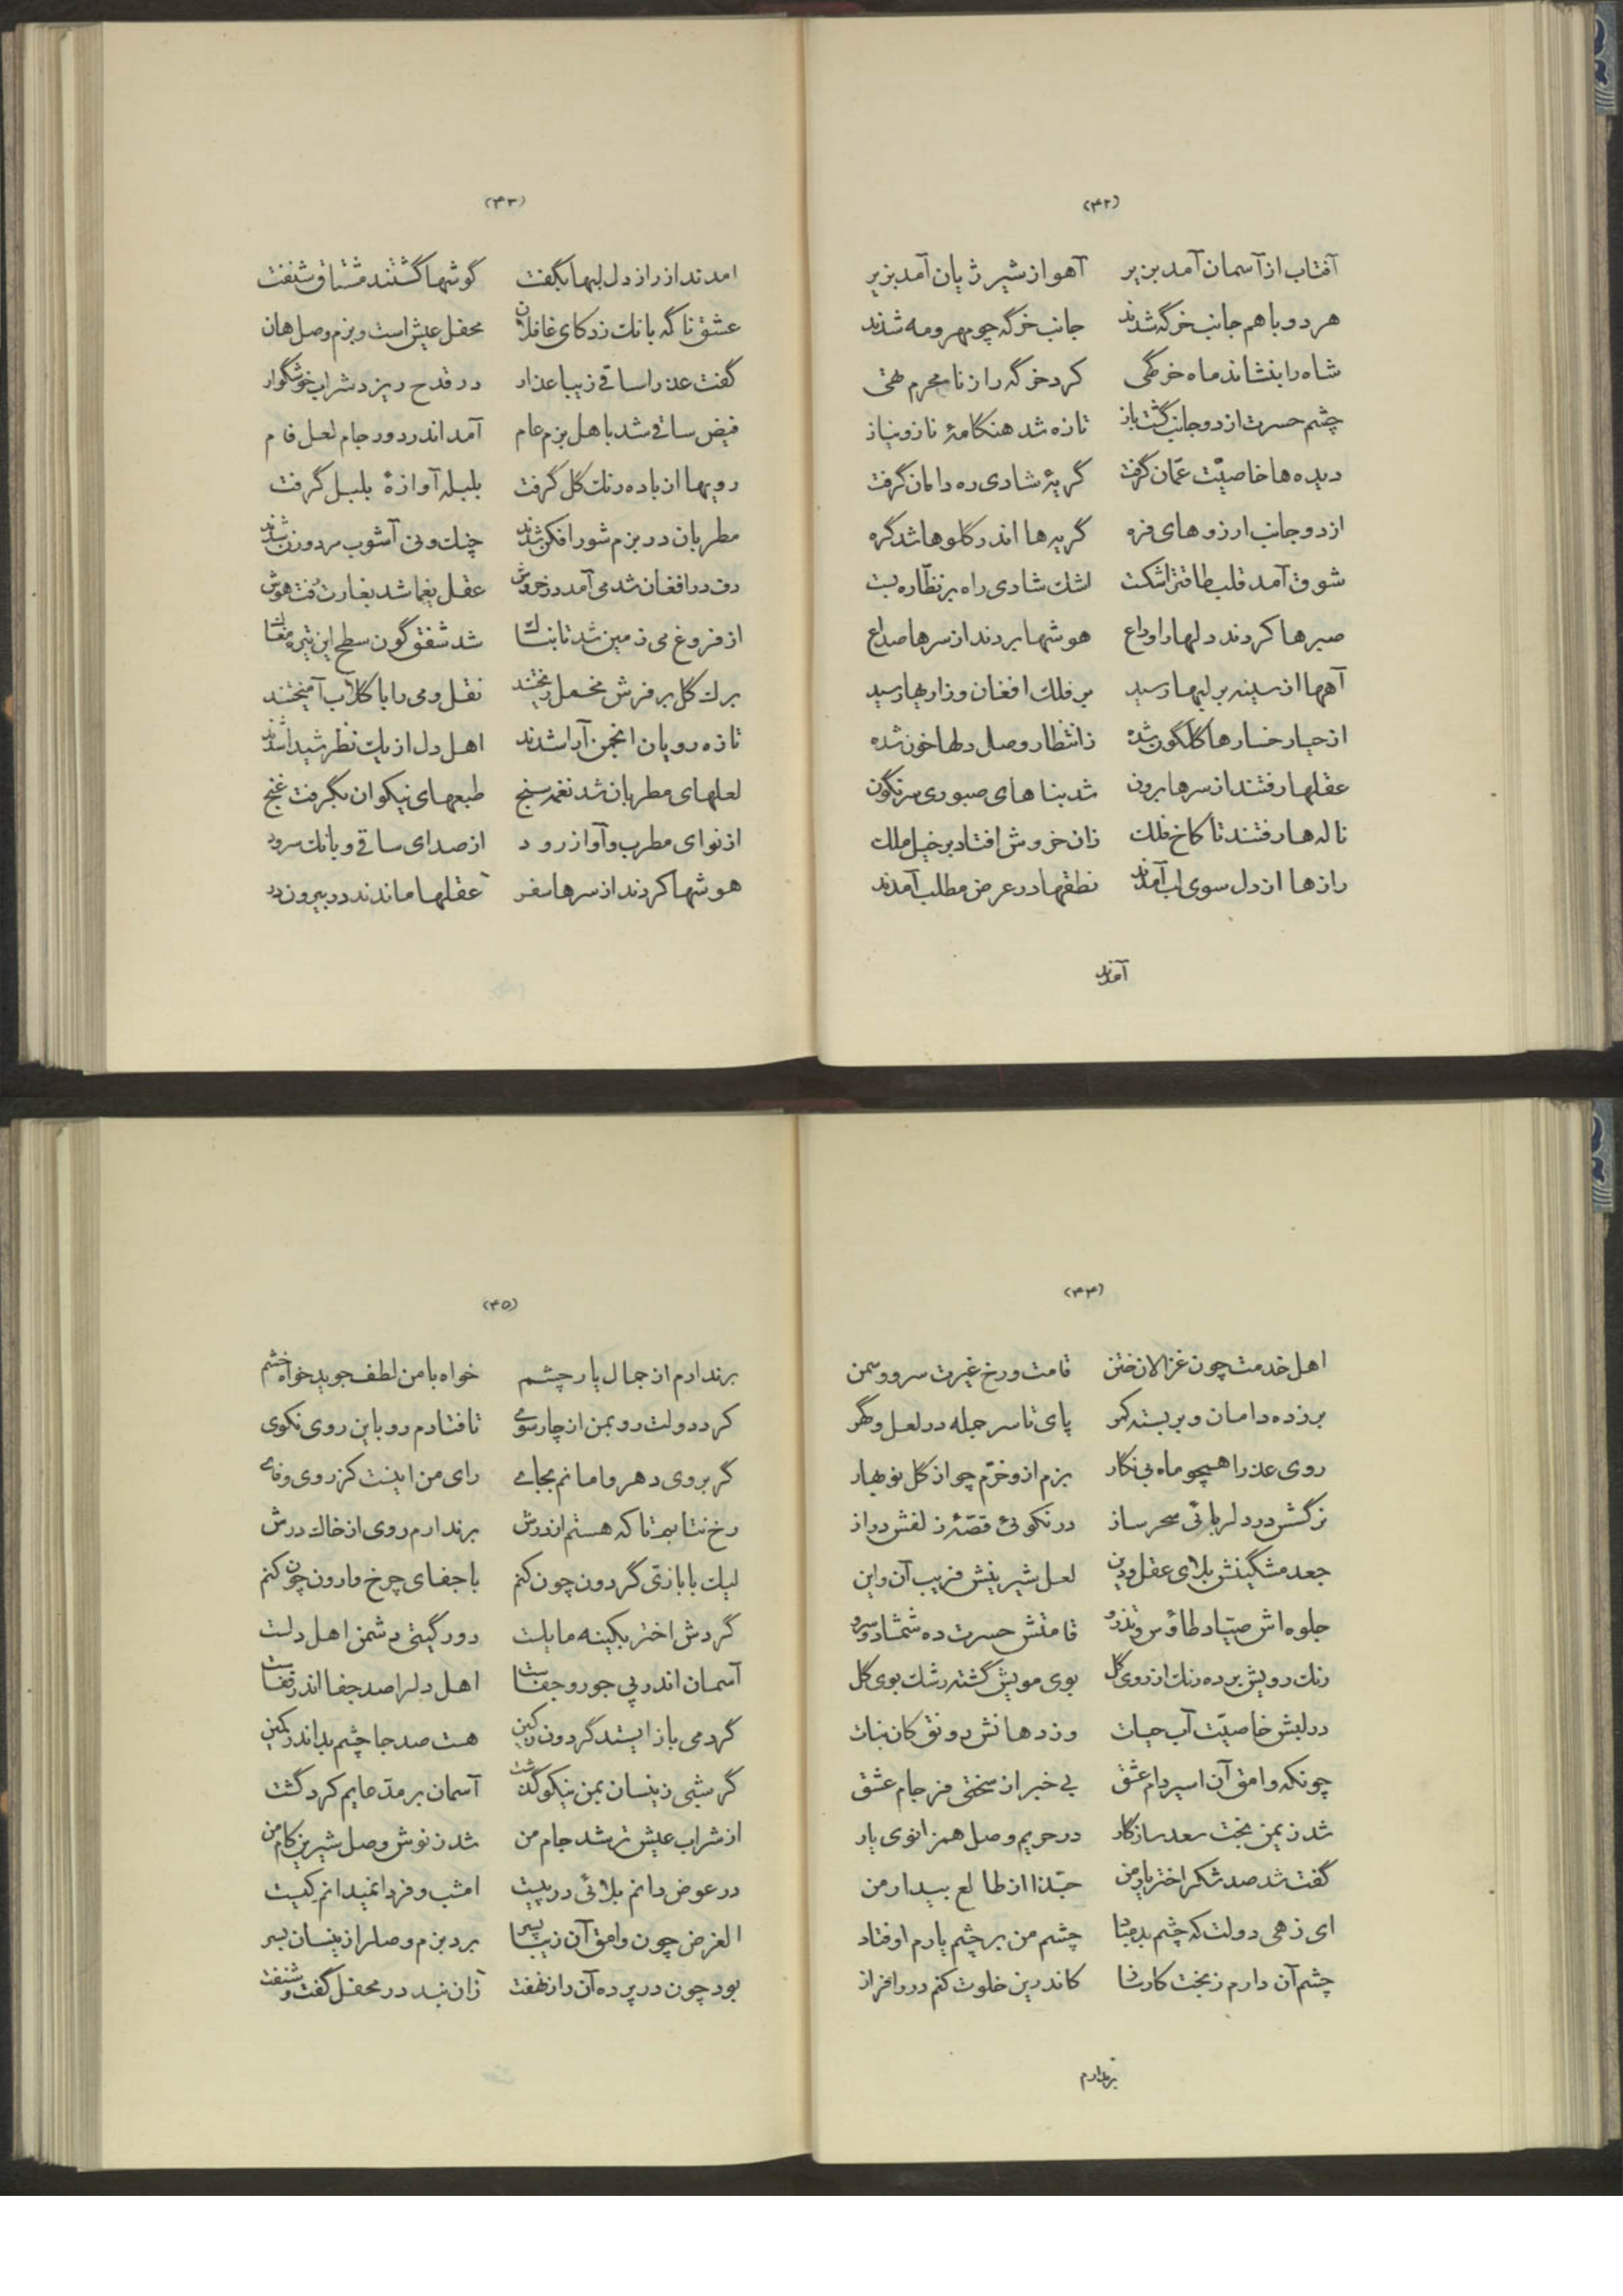 (۴۲)
آفتاب از آسمان آمد بزیر آهو از شیر ژیان آمد بزیر
هر دو با هم جانب خرگه شدند جانب خرگه چو مهر و مه شدند
شاه را بنشاند ماه خرگهی کرد خرگه را ز نامحرم تهی
چشم حسرت از دو جانب گشت باز تازه شد هنکامهٔ ناز و نیاز
دیده‌ها خاصیّت عمّان گرفت گریهٔ شادی ره دامان گرفت
از دو جانب ارزوهای فره گریه‌ها اندر گلوها شد گره
شوق آمد قلب طاقت را شکست اشك شادی راه بر نظّاره بست
صبرها کردند دلها را وداع هوشها بردند از سرها صداع
آهها از سینه بر لبها رسید بر فلك افغان و زاریها رسید
از حیا رخسارها گلگون شده ز انتظار وصل دلها خون شده
عقلها رفتند از سرها برون شد بناهای صبوری سرنگون
ناله‌ها رفتند تا کاخ فلك زان خروش افتاد بر خیل ملك
رازها از دل سوی لب آمدند نطقها در عرض مطلب آمدند
آمدند
(۴۳)
امدند از راز دل لبها بگفت گوشها گشتند مشتاق شنفت
عشق ناگه بانك زد کای غافلان محفل عیش است و بزم وصل هان
گفت عذرا ساقی زیبا عذار در قدح ریزد شراب خوشگوار
فیض ساقی شد باهل بزم عام آمد اندر دور جام لعل فام
رویها از باده رنك گل گرفت بلبله آوازهٔ بلبل گرفت
مطربان در بزم شور افکن شدند چنك و نی آشوب مرد و زن شدند
دف در افغان شد می آمد در خروش عقل یغما شد بغارت رفت هوش
از فروغ می زمین شد تابناك شد شفق گون سطح این تیره مغاك
برك گل بر فرش مخمل ریختند نقل و می را با گلاب آمیختند
تازه رویان انجمن آرا شدند اهل دل از یك نظر شیدا شدند
لعلهای مطربان شد نغمه سنج طبعهای نیکوان بگرفت غنج
از نوای مطرب و آواز رود از صدای ساقی و بانك سرود
هوشها کردند از سرها سفر عقلها ماندند در بیرون در
(۴۴)
اهل خدمت چون غزالان ختن قامت و رخ غیرت سرو و سمن
بر زده دامان و بر بسته کمر پای تا سر جمله در لعل و گهر
روی عذرا همچو ماه بی نکار بزم ازو خرّم چو از گل نوبهار
نرگسش در دلربائی سحر ساز در نکوئی قصّهٔ زلفش دراز
جعد مشگینش بلای عقل و دین لعل شیرینش فریب آن و این
جلوه‌اش صیّاد طاؤس و تذرو قامتش حسرت ده شمشاد و سرو
رنك رویش برده رنك از روی گل بوی مویش گشته رشك بوی گل
در لبش خاصیّت آب حیات وز دهانش رونق کان نبات
چونکه وامق آن اسیر دام عشق بی خبر از سختی فرجام عشق
شد ز یمن بخت سعد سازگار در حریم وصل همزانوی یار
گفت شد صد شکر اختر یار من حبّذا از طالع بیدار من
ای زهی دولت که چشم بد مباد چشم من بر چشم یارم اوفتاد
چشم آن دارم ز بخت کارساز کاندرین خلوت کنم در را فراز
برندارم
(۴۵)
برندارم از جمال یار چشم خواه با من لطف جوید خواه خشم
کرد دولت رو بمن از چارسوی تا فتادم رو باین روی نکوی
گر بروی دهر وامانم بجای رای من اینست کز روی وفای
رخ نتابم تا که هستم از درش برندارم روی از خاك درش
لیك با بازیّ گردون چون کنم با جفای چرخ وارون چون کنم
گردش اختر بکینه مایلست دور گیتی دشمن اهل دلست
آسمان اندر پی جور و جفاست اهل دلرا صد جفا اندر قفاست
گر دمی باز ایستد گردون ز کین هست صد جا چشم بد اندر کمین
گر شبی زینسان بمن نیکو گذشت آسمان بر مدّعایم کرد گشت
از شراب عیش تر شد جام من شد ز نوش وصل شیرین کام من
در عوض دانم بلائی در پیست امشب و فردا نمیدانم کیست
الغرض چون وامق آن زیبا پسر برد بزم وصلرا زینسان بسر
بود چون در پرده آن راز نهفت زان نبد در محفل گفت و شنفت